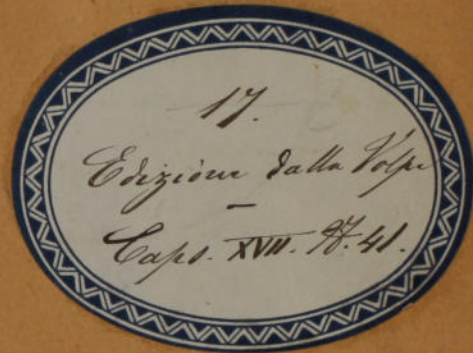 17.
Edizione dalla Volpe
—
Caps. XVII. N. 41.